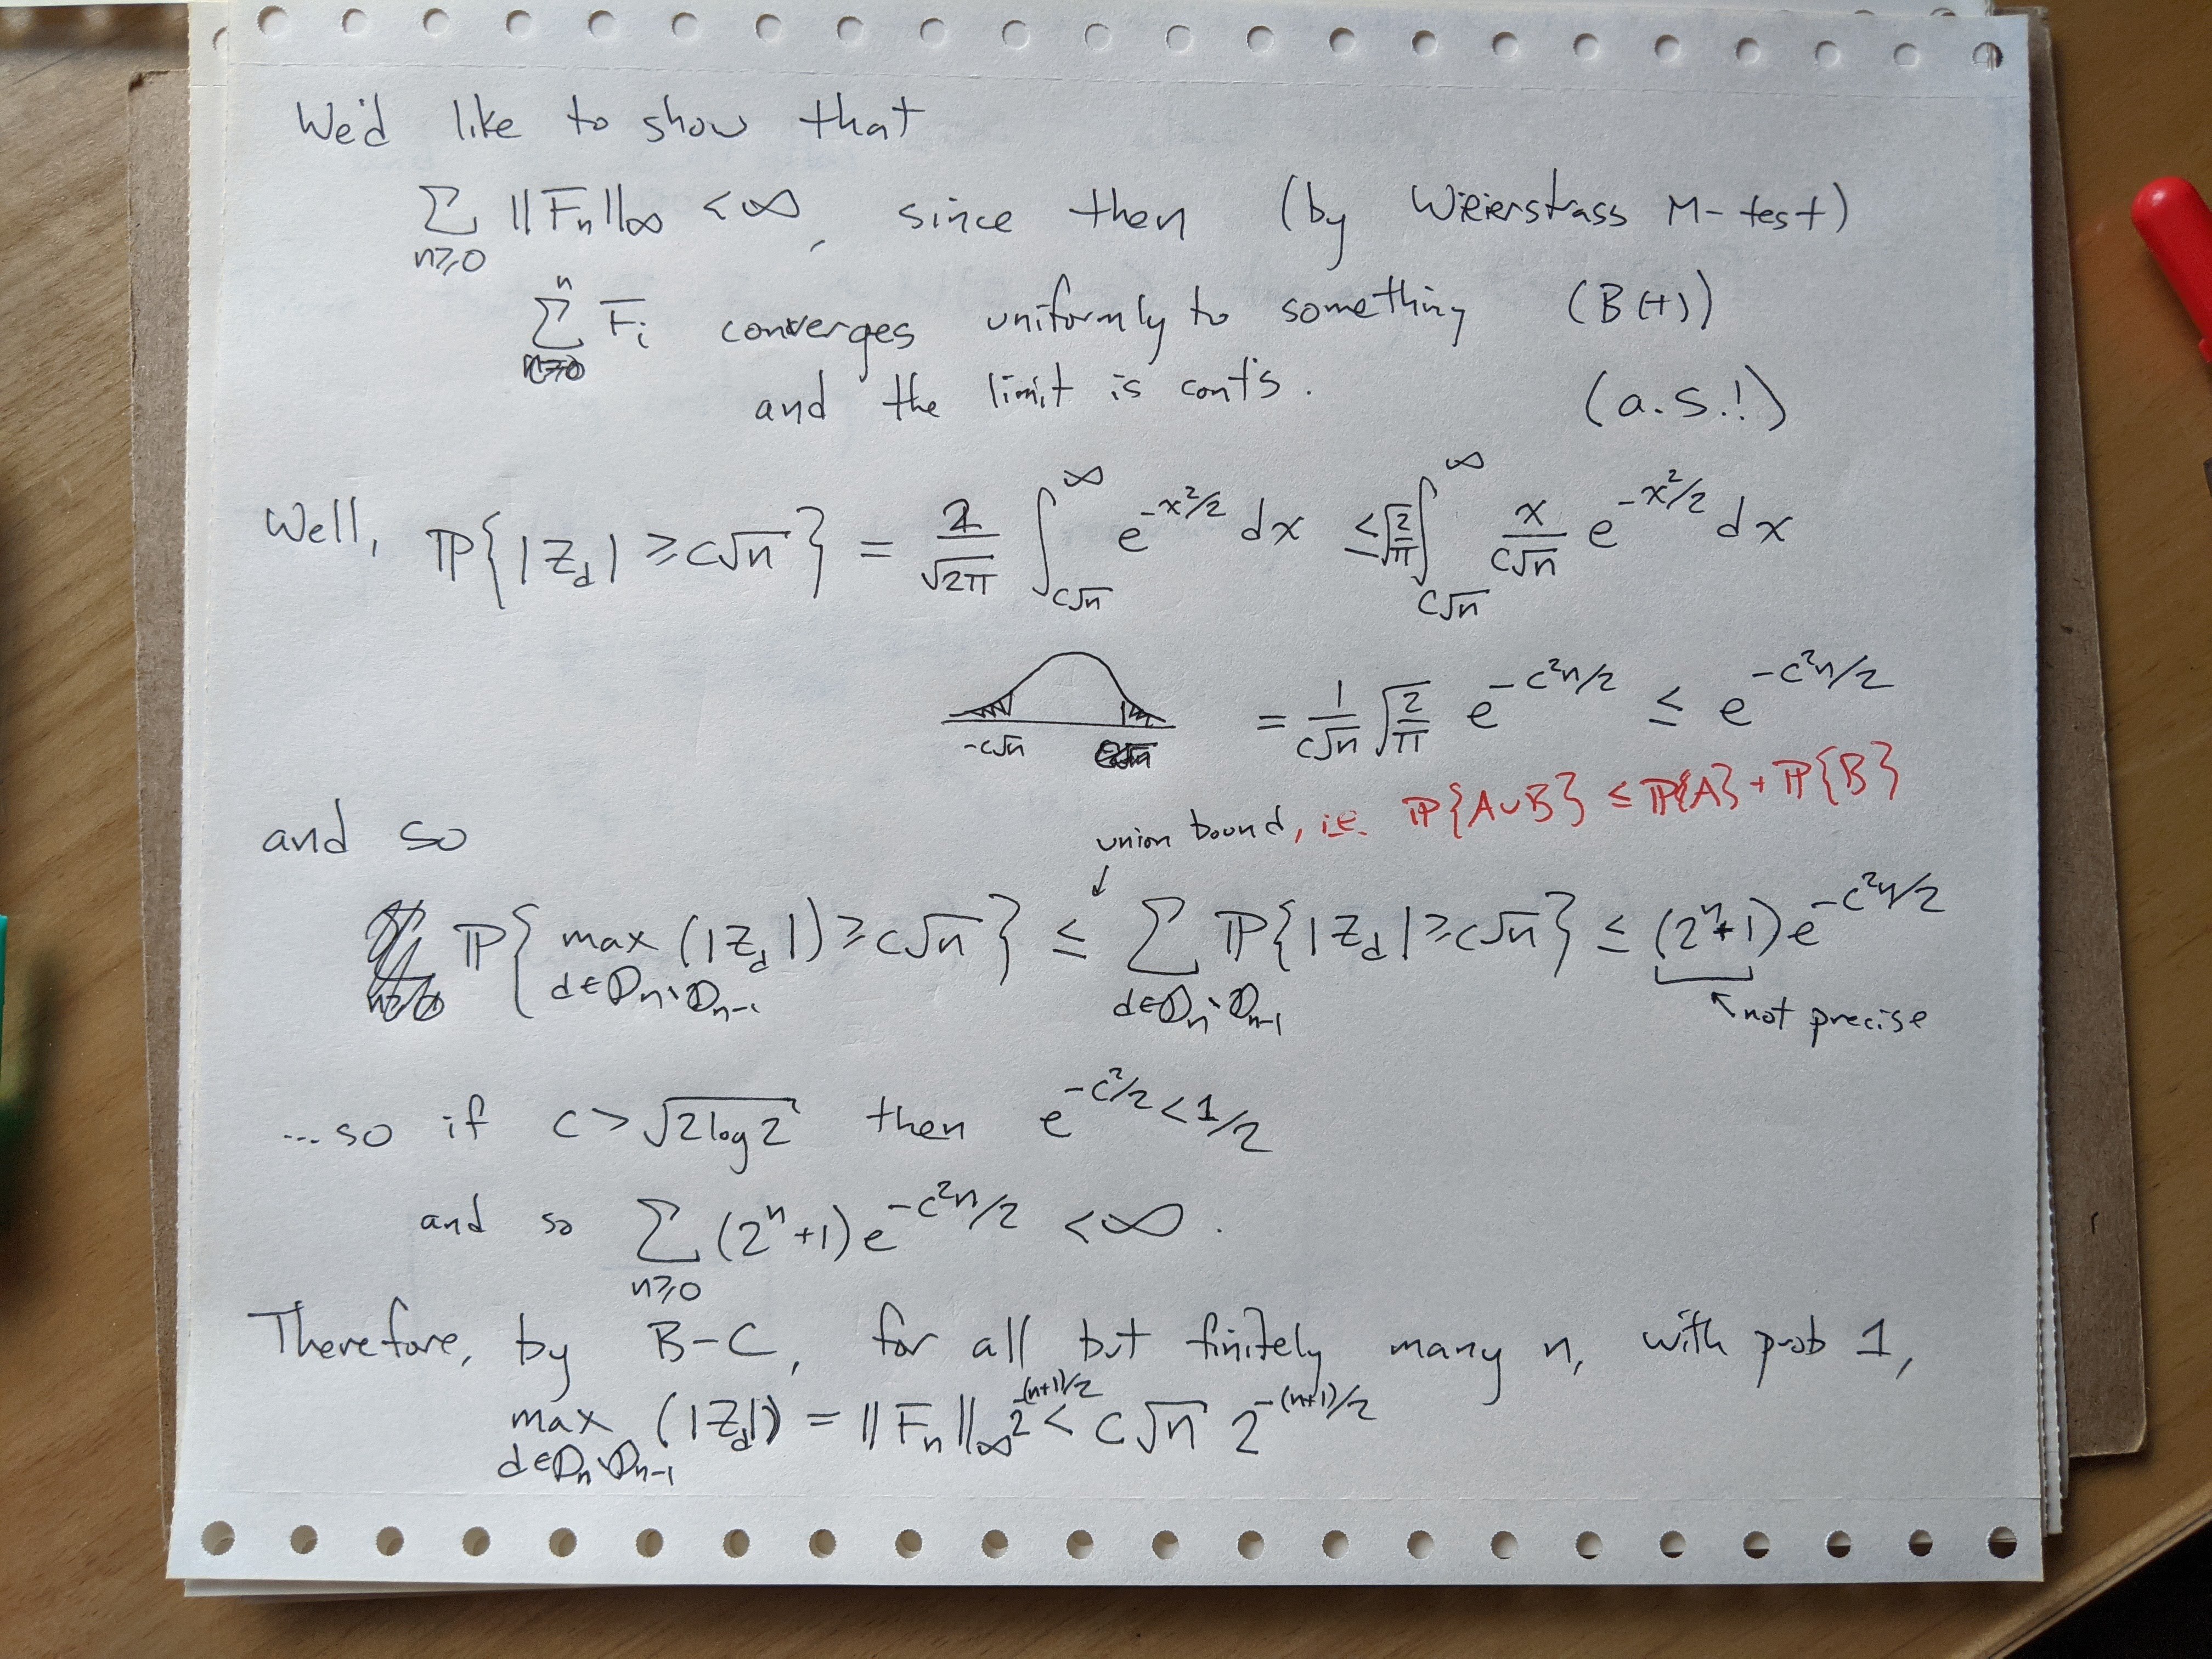 We'd like to show that
∑_{n≥0} ||F_n||_∞ < ∞, since then (by Weierstrass M-test)
∑^n F_i converges uniformly to something (B(t))
and the limit is cont's. (a.s.!)
Well, ℙ{|Z_d| ≥ c√n} = 2/√(2π) ∫_{c√n}^∞ e^{-x²/2} dx ≤ √(2/π) ∫_{c√n}^∞ x/(c√n) e^{-x²/2} dx
-c√n = 1/(c√n) √(2/π) e^{-c²n/2} ≤ e^{-c²n/2}
union bound, i.e. ℙ{A∪B} ≤ ℙ{A} + ℙ{B}
and so
ℙ{max_{d∈𝔻_n∖𝔻_{n-1}} (|Z_d|) ≥ c√n} ≤ ∑_{d∈𝔻_n∖𝔻_{n-1}} ℙ{|Z_d| ≥ c√n} ≤ (2^n+1) e^{-c²n/2}
↖ not precise
...so if c > √(2log2) then e^{-c²/2} < 1/2
and so ∑_{n≥0} (2^n+1) e^{-c²n/2} < ∞.
Therefore, by B-C, for all but finitely many n, with prob 1,
max_{d∈𝔻_n∖𝔻_{n-1}} (|Z_d|) = ||F_n||_∞ 2^{-(n+1)/2} < c√n 2^{-(n+1)/2}